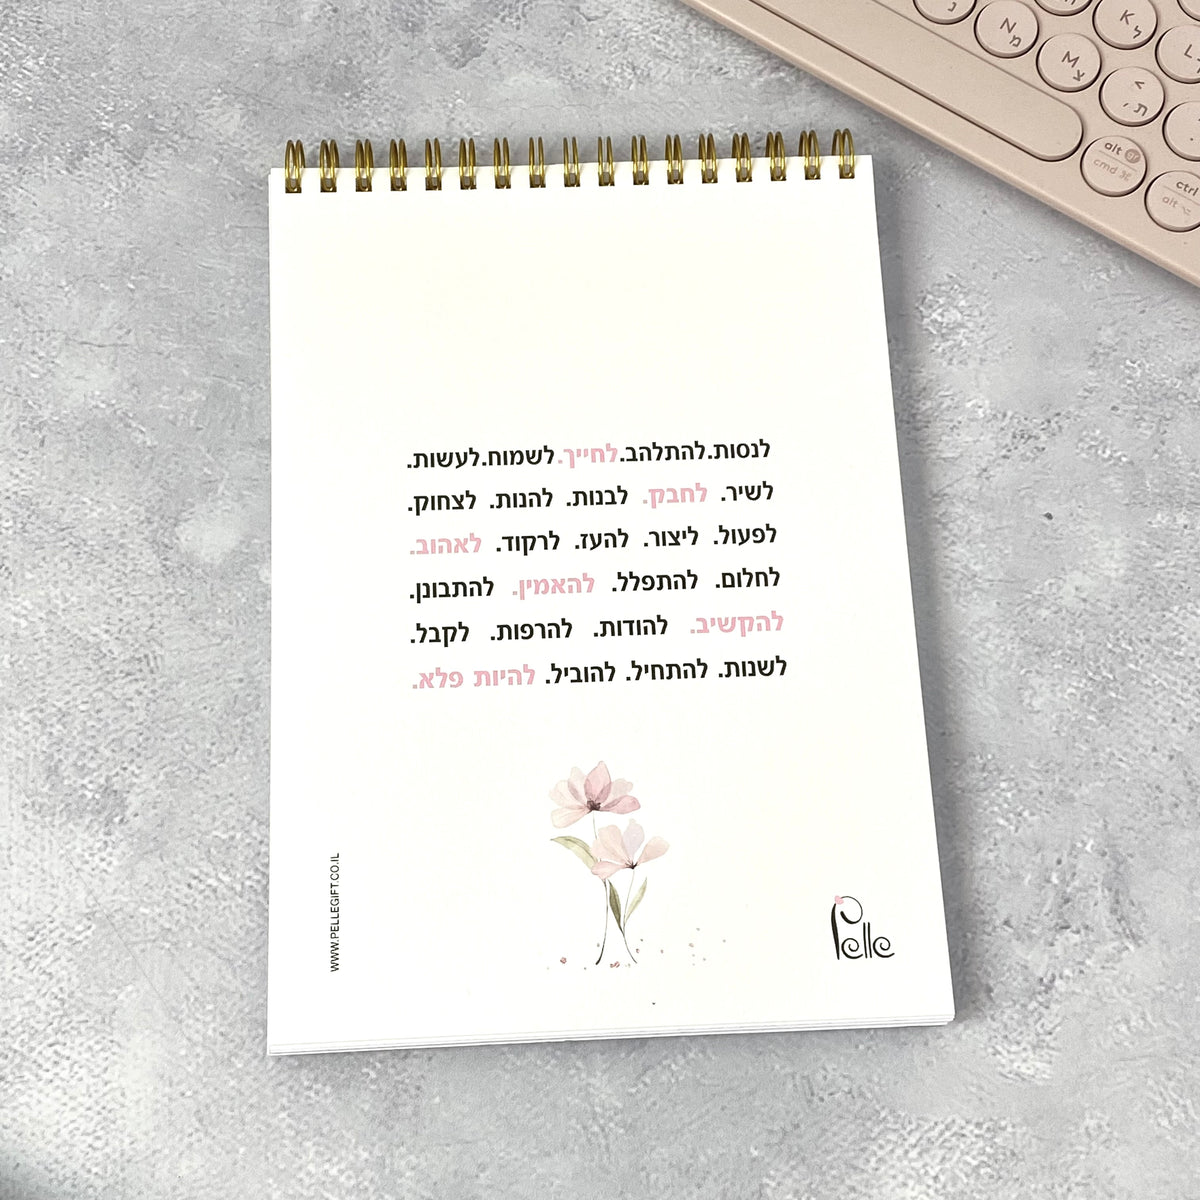 לנסות.להתלהב.לחייך.לשמוח.לעשות.
לשיר. לחבק. לבנות. להנות. לצחוק.
לפעול. ליצור. להעז. לרקוד. לאהוב.
לחלום. להתפלל. להאמין. להתבונן.
להקשיב. להודות. להרפות. לקבל.
לשנות. להתחיל. להוביל. להיות פלא.
WWW.PELLEGIFT.CO.IL
Pelle
נ
N מ
K ל
L
M צ
< ת ,
alt gr
cmd ⌘
ctrl
alt ⌥